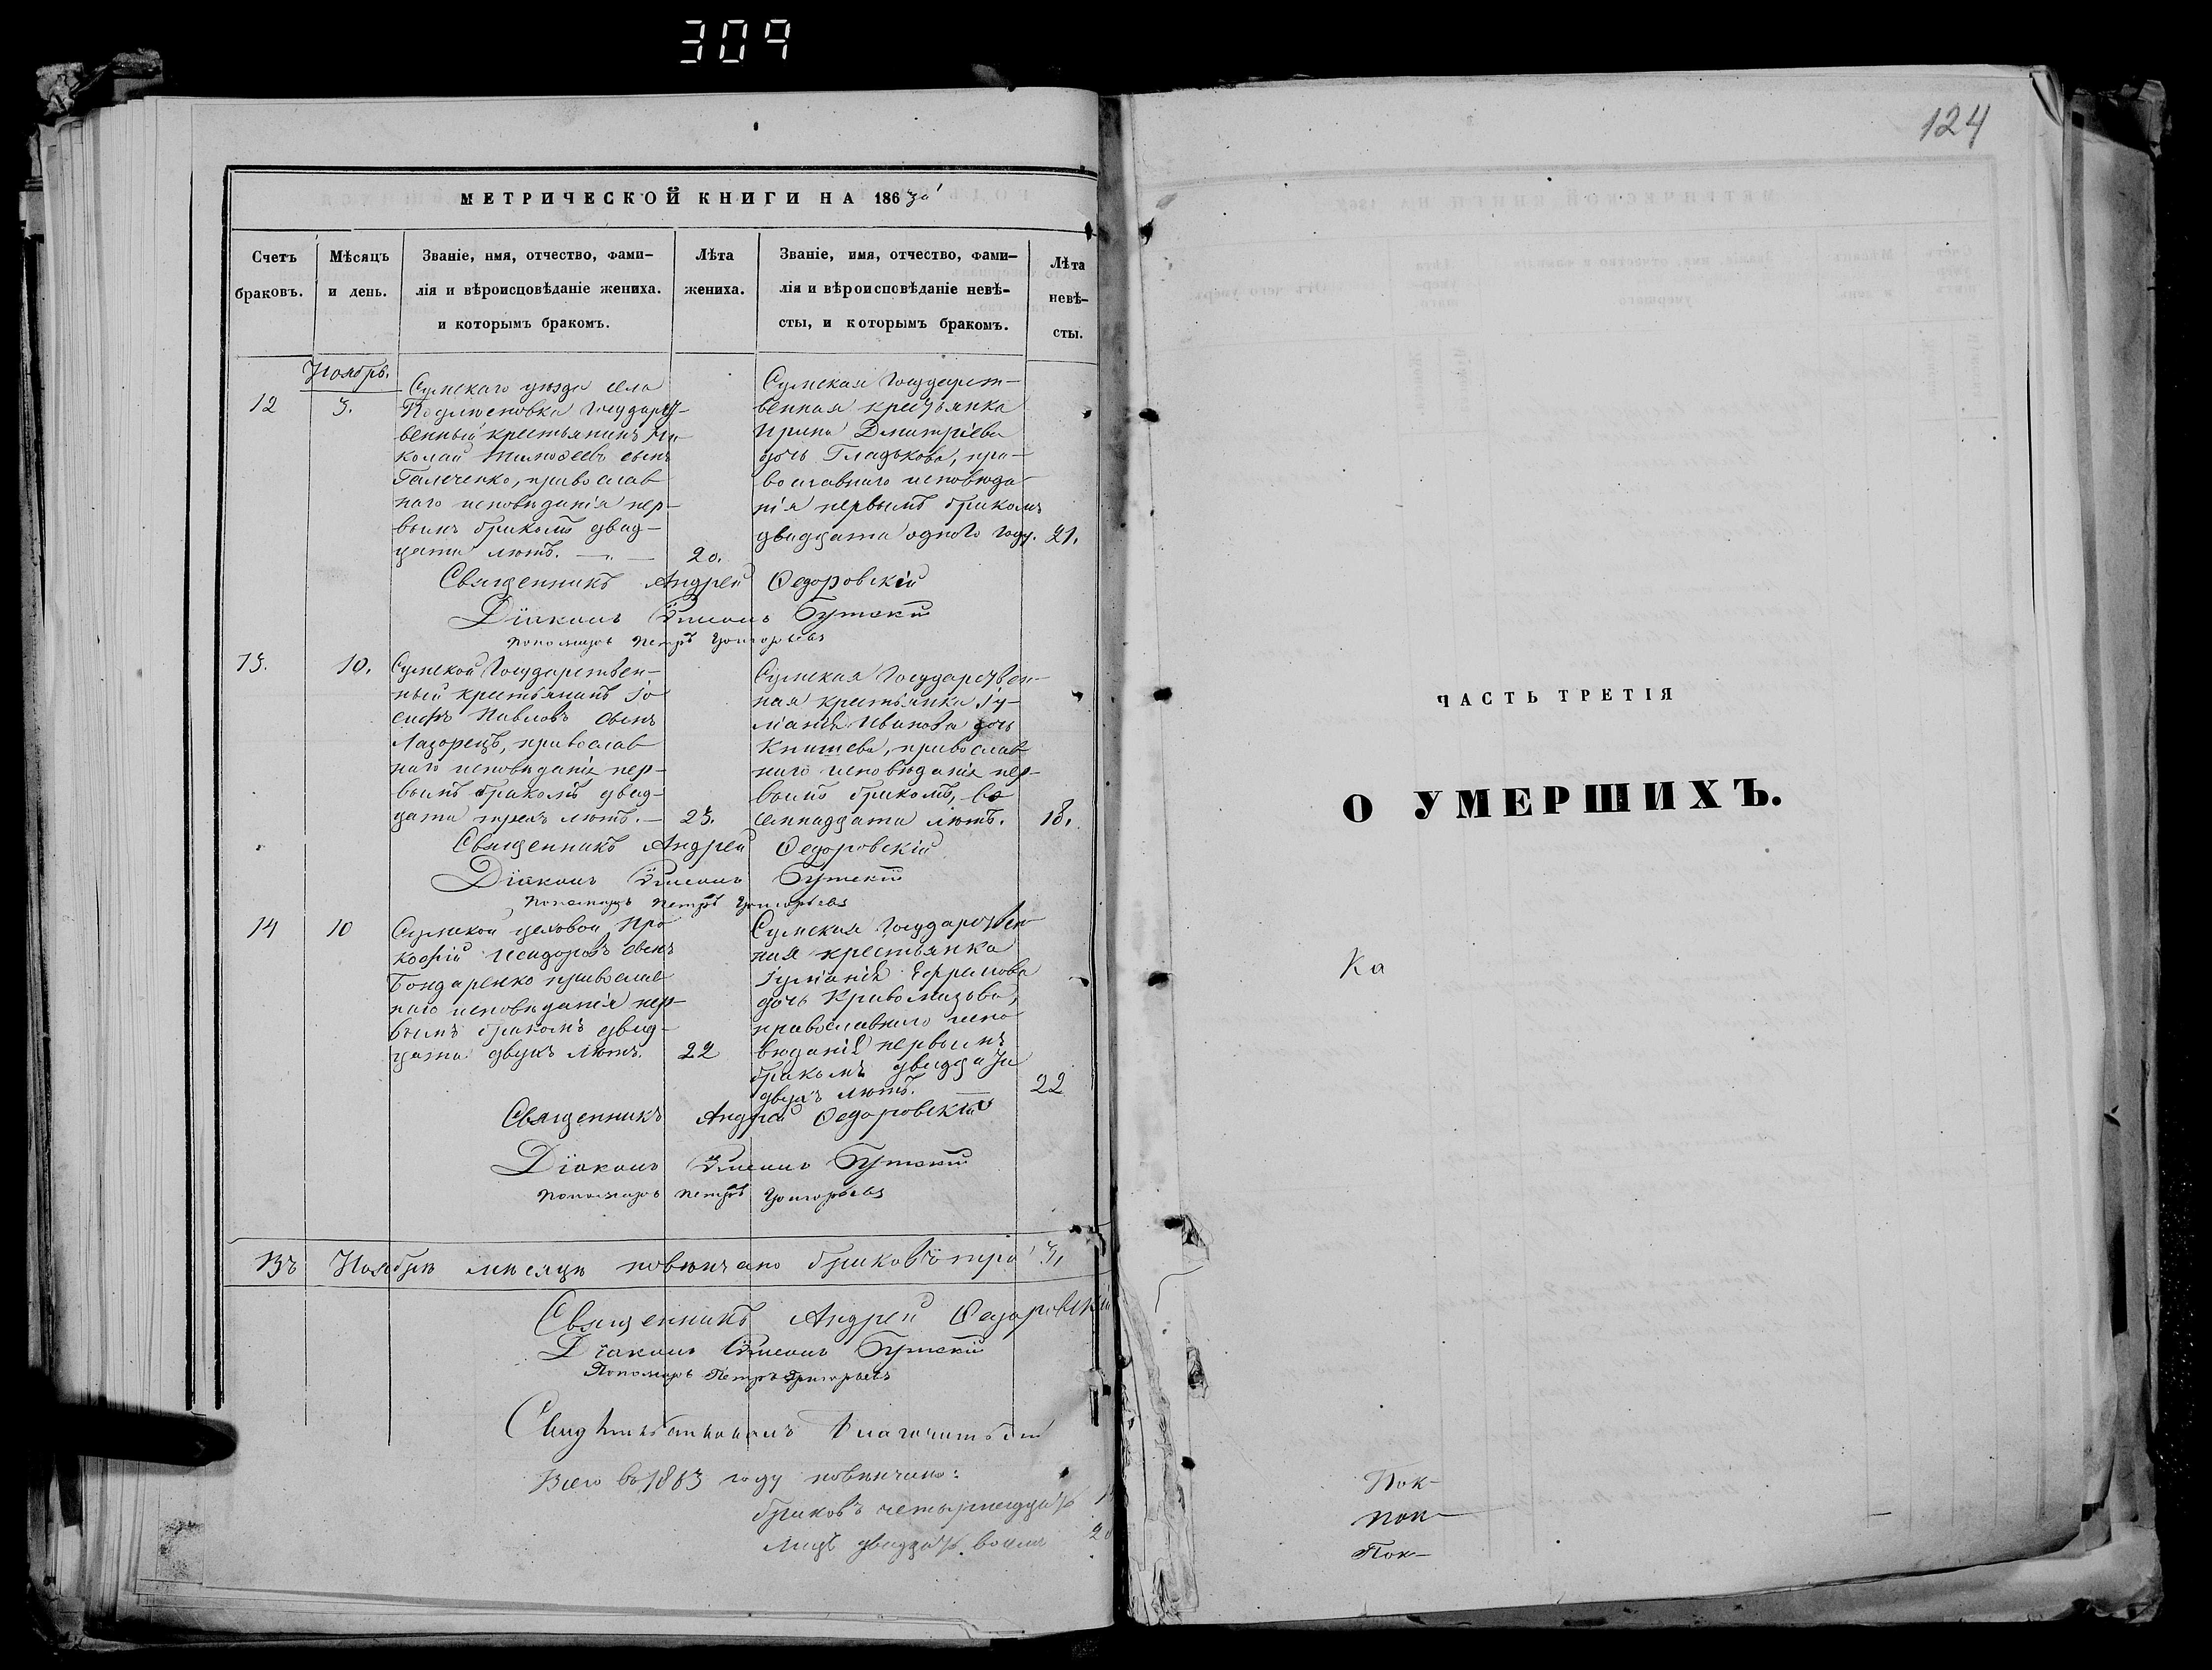 309
МЕТРИЧЕСКОЙ КНИГИ НА 1863й
Счетъ браковъ.
Мѣсяцъ и день.
Званіе, имя, отчество, фами-
лія и вѣроисповѣданіе жениха.
и которымъ бракомъ.
Лѣта жениха.
Званіе, имя, отчество, фами-
лія и вѣроисповѣданіе невѣ-
сты, и которымъ бракомъ.
Лѣта невѣ-
сты.
Ноябрь.
12
3.
Сумскаго уѣзда села
Государст-
венный крестьянинъ Ни-
колай Тимоѳеевъ сынъ
Галченко, православ
наго исповѣданія пер-
вымъ бракомъ двад-
цати лѣтъ.
20.
Сумская Государст-
венная крестьянка
Ирина Димитріева
дочь Гладькова, пра-
вославнаго исповѣда
нія первымъ бракомъ
двадцати одного году.
21.
Священникъ Андрей Ѳедоровскій
Діаконъ Симеонъ Бутскій
Пономарь Петръ Григорьевъ
13.
10.
Сумской Государствен-
ный крестьянинъ Іо
сифъ Павловъ сынъ
Лазорецъ, православ
наго исповѣданія пер-
вымъ бракомъ двад-
цати трехъ лѣтъ.
23.
Сумская Государствен-
ная крестьянка Іу-
ліанія Иванова дочь
Книшева, православ
наго исповѣданія пер-
вымъ бракомъ, во
семнадцати лѣтъ.
18.
Священникъ Андрей Ѳедоровскій
Діаконъ Симеонъ Бутскій
Пономарь Петръ Григорьевъ
14
10
Сумской цеховой Про
кофій Исидоровъ сынъ
Бондаренко православ
наго исповѣданія пер-
вымъ бракомъ двад-
цати двухъ лѣтъ.
22
Сумская Государствен
ная крестьянка
Іуліанія Ефремова
дочь Кривомазова,
православнаго испо
вѣданія первымъ
бракомъ двадцати
двухъ лѣтъ.
22
Священникъ Андрей Ѳедоровскій
Діаконъ Симеонъ Бутскій
Пономарь Петръ Григорьевъ
Въ Ноябрѣ мѣсяцѣ повѣнчано браковъ три 3,
Священникъ Андрей Ѳедоровскій
Діаконъ Симеонъ Бутскій
Пономарь Петръ Григорьевъ
Всего въ 1863 году повѣнчано:
браковъ четырнадцать
лицъ двадцать восемь
124
ЧАСТЬ ТРЕТІЯ
О УМЕРШИХЪ.
Ка
Пок-
пон-
Пон-